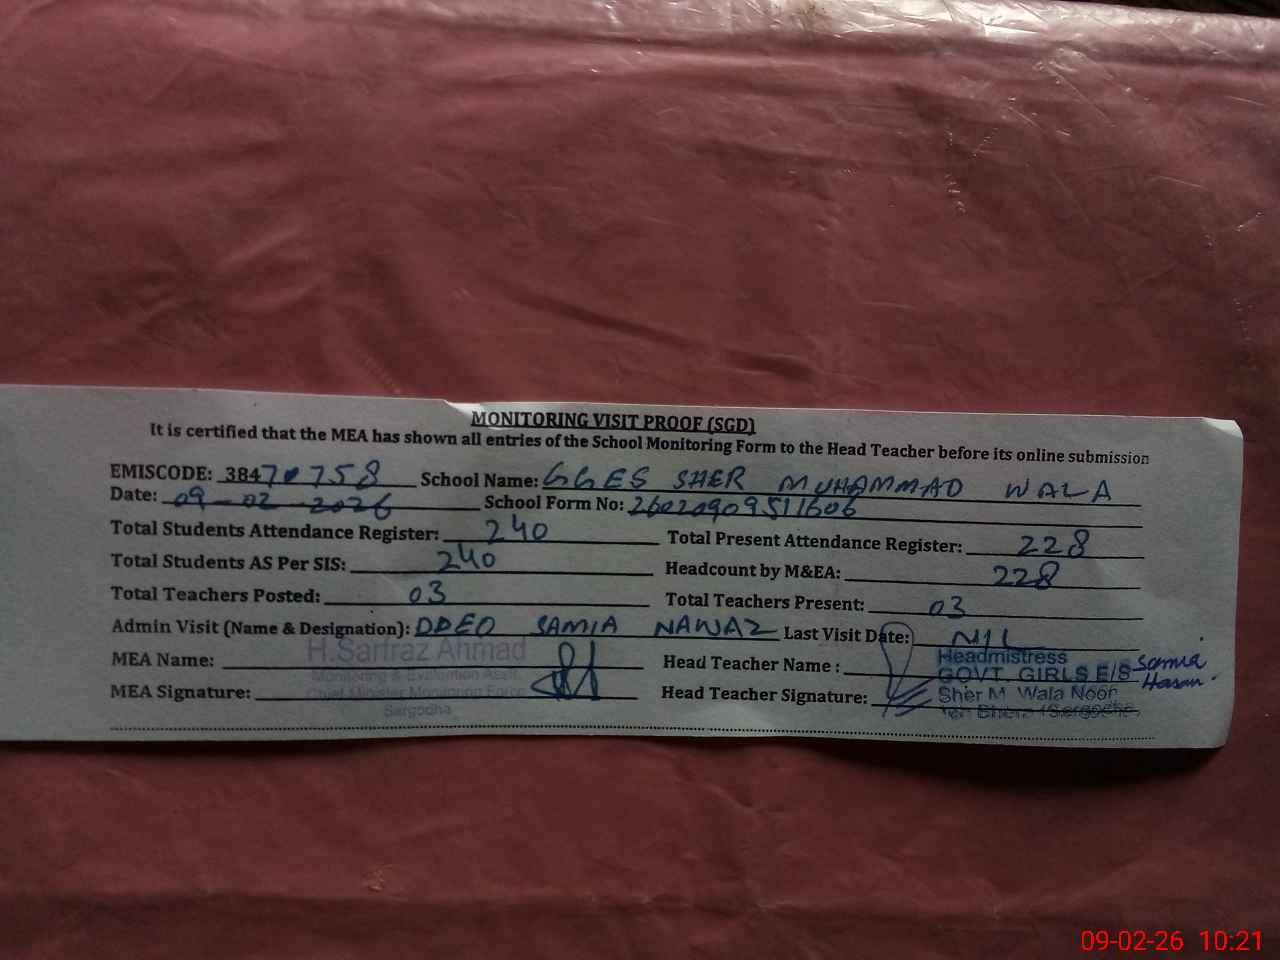 MONITORING VISIT PROOF (SGD)
It is certified that the MEA has shown all entries of the School Monitoring Form to the Head Teacher before its online submission
EMISCODE: 38470758 School Name: GGES SHER MUHAMMAD WALA
Date: 09-02-2026 School Form No: 26020909511606
Total Students Attendance Register: 240 Total Present Attendance Register: 228
Total Students AS Per SIS: 240 Headcount by M&EA: 228
Total Teachers Posted: 03 Total Teachers Present: 03
Admin Visit (Name & Designation): DDEO SAMIA NAWAZ Last Visit Date: NIL
MEA Name: H.Sarfraz Ahmad Head Teacher Name : Headmistress
Monitoring & Evaluation Asstt. GOVT. GIRLS E/S Samia Hasan
MEA Signature: Chief Minister Monitoring Force Head Teacher Signature: Sher M. Wala Noon
Sargodha Teh Bhera (Sargodha)
09-02-26 10:21